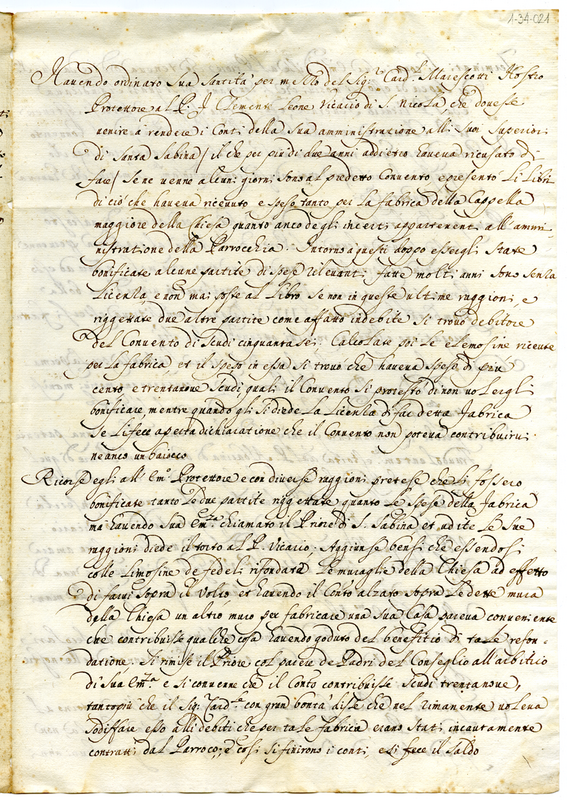 1-34-021
Havendo ordinato Sua Santità per mezzo del Sig.r Card.l Marescotti Nostro
Protettore al P. F. Clemente Leone vicario di S. Nicola, che dovesse
venire a rendere i Conti della Sua amministrazione alli suoi Superiori
di Santa Sabina / il che per più di due anni addietro haveva ricusato di
fare / se ne venne alcuni giorni sono al predetto Convento e presentò li libri
di ciò che haveva ricevuto e speso tanto per la fabrica della Cappella
maggiore della Chiesa quanto anco degli appartenenti all'ammi-
nistrazione della Parrocchia. Intorno a questi doppo essergli state
bonificate alcune partite di spese rilevanti fatte molti anni sono senza
licenza, e non mai poste al libro se non in queste ultime raggioni, e
riggettate due altre partite come affatto indebite si trovò debitore
del Convento di scudi cinquanta sei. Calcolate poi le elemosine ricevute
per la fabrica, et il speso in essa si trovò che haveva speso di più
cento e trentanove scudi quali il Convento si protestò di non volergli
bonificare mentre quando gli si diede la licenza di far detta fabrica
se li fece aperta dichiaratione che il Convento non poteva contribuirvi
ne anco un baiocco
Ricorse egli all' Em.o Protettore e con diverse raggioni pretese che li fossero
bonificate tanto le due partite riggettate quanto le spese della fabrica
ma havendo Sua Em.za chiamato il Priore di S. Sabina et udite le sue
raggioni diede il torto al P. Vicario. Aggiunse bensì che essendosi
colle limosine de fedeli rifondata le muraglie della Chiesa ad effetto
di farvi sopra il volto et havendo il alzato sopra le dette mura
della Chiesa un altro muro per fabricare una sua Casa pareva conveniente
che contribuisse qualche cosa havendo goduto del beneficio di tale refon-
datione. Si rimise il Priore col parere de Padri del Conseglio all'arbitrio
di Sua Em.za e si convenne che il contribuisse scudi trentanove,
tantopiù che il Sig. Card.le con gran bontà disse che nel rimanente voleva
sodisfare esso alli debiti che per tale fabrica erano stati incautamente
contratti dal Parroco; e così si finirono i conti, e si fece il saldo